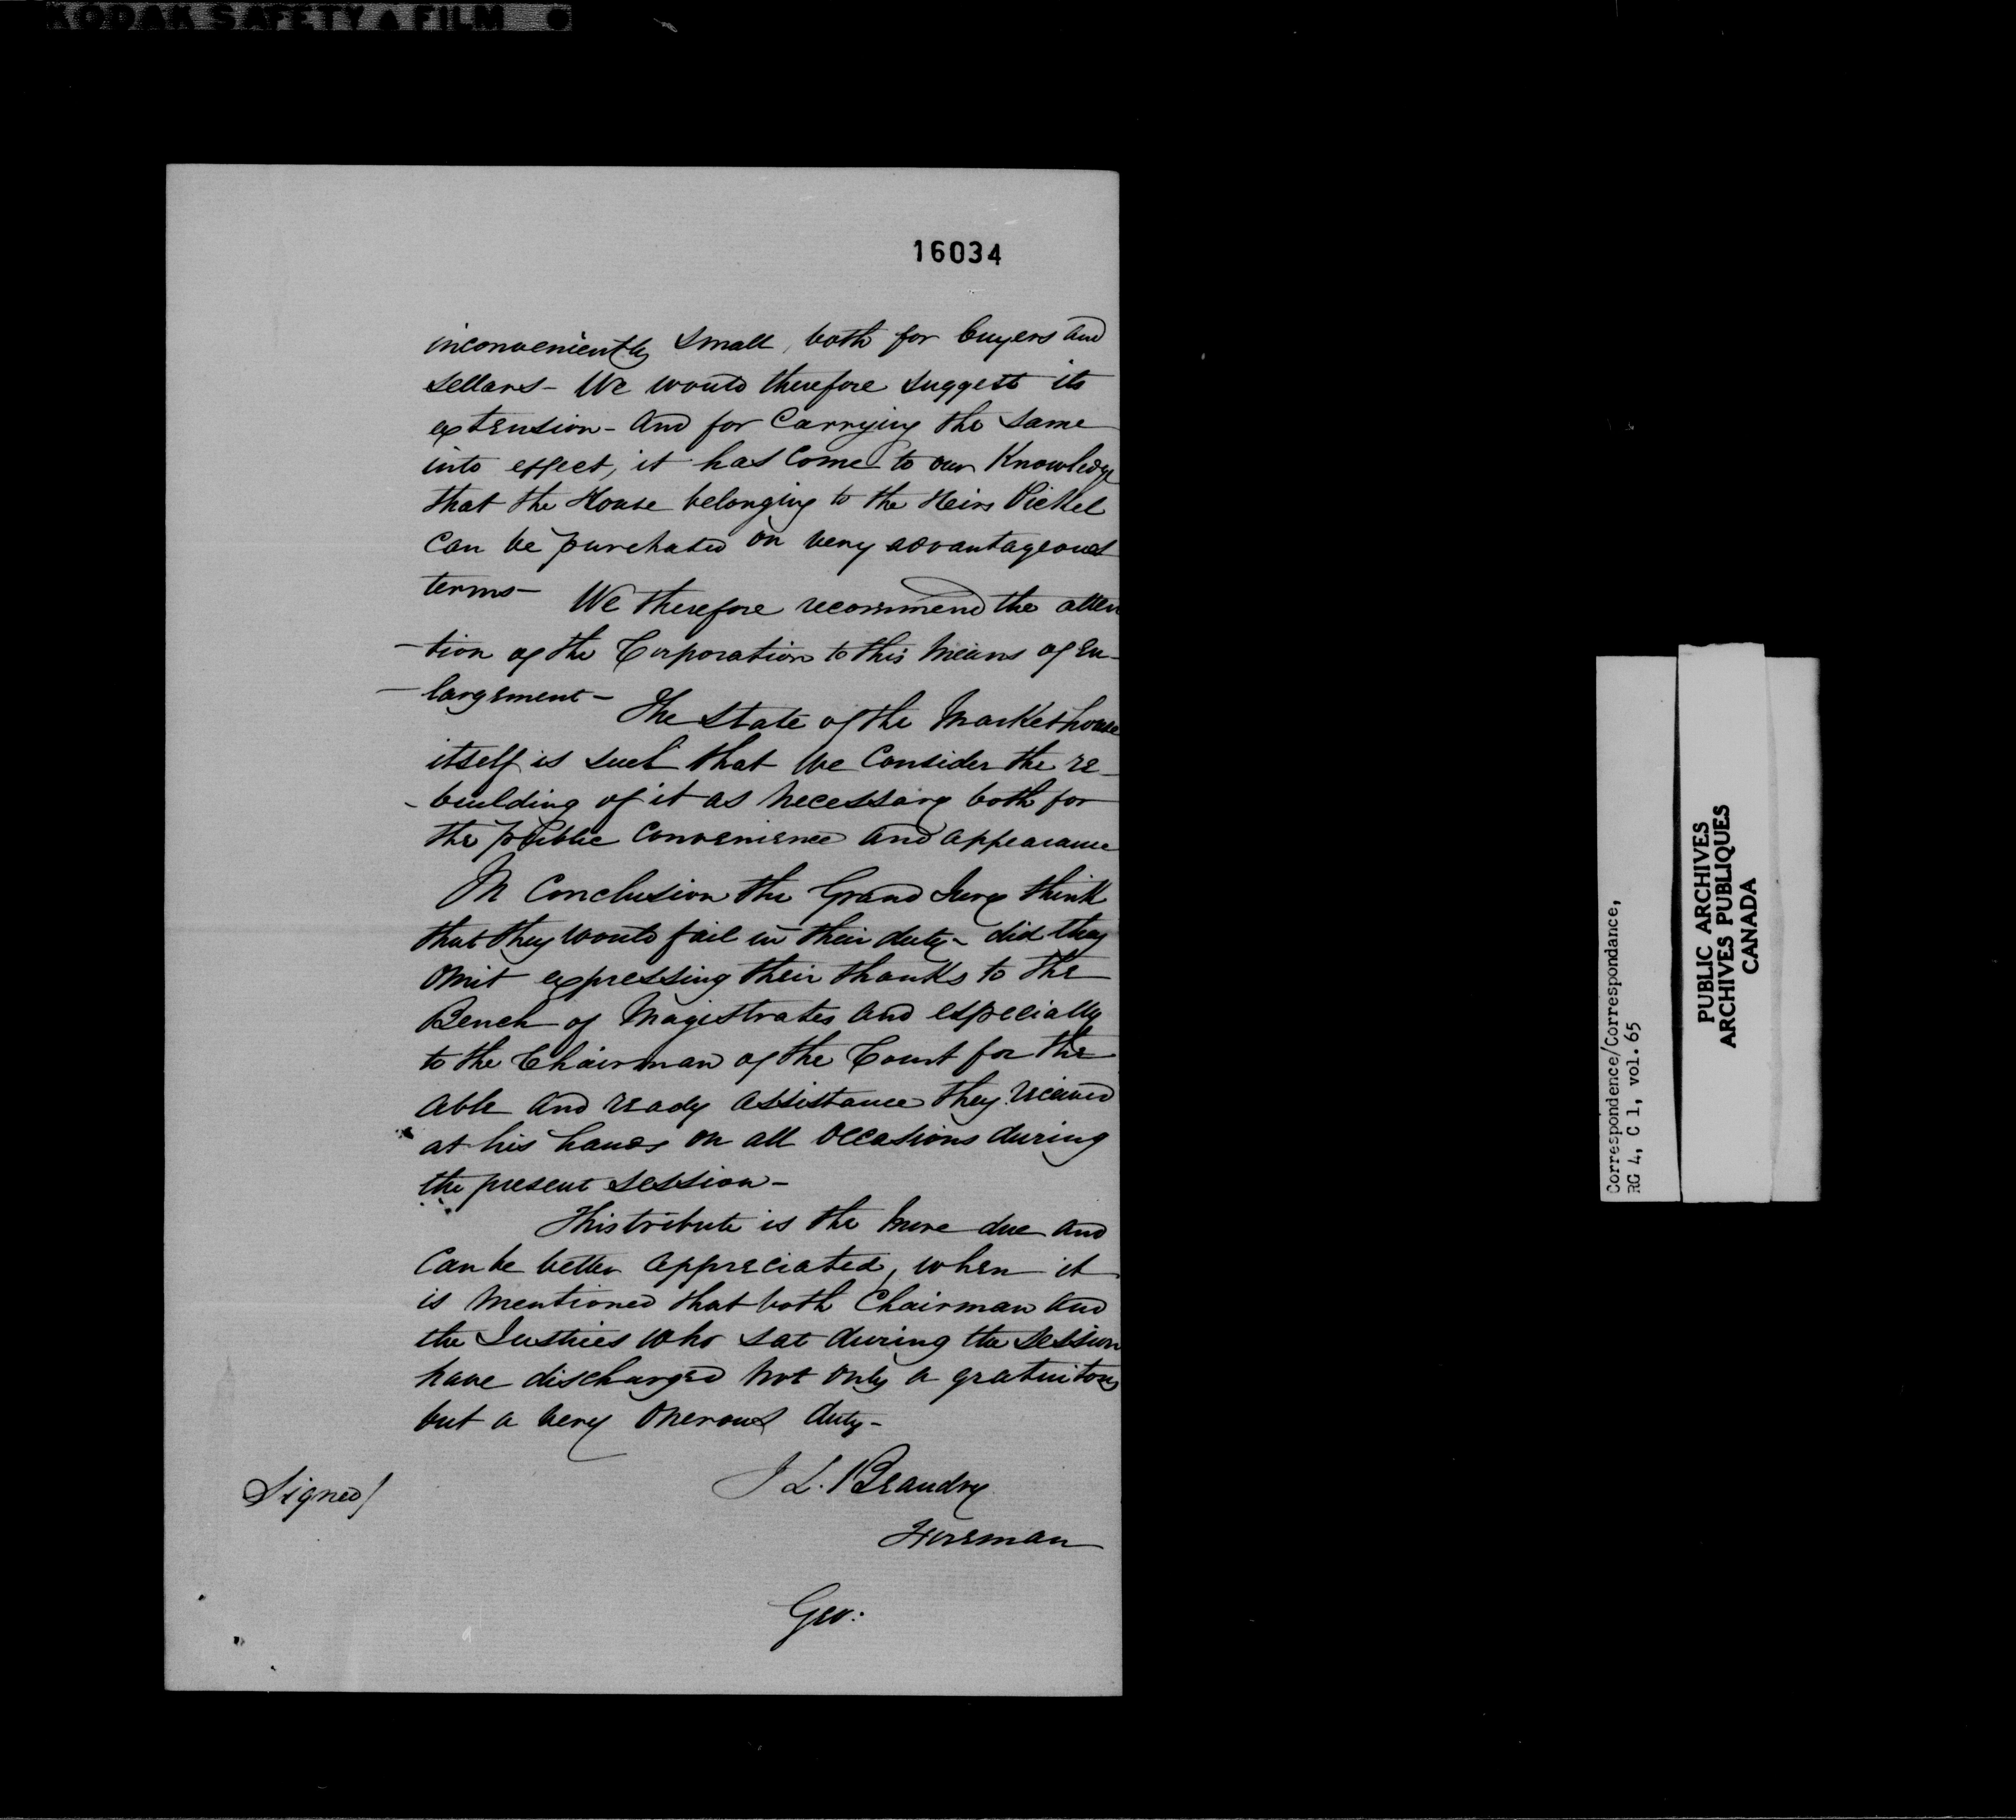 KODAK SAFETY FILM
16034
inconveniently small, both for buyers and
sellars - We would therefore suggest its
extension - and for carrying the same
into effect, it has come to our Knowledge
that the House belonging to the Heirs
can be purchased on very advantageous
terms -
We therefore recommend the atten
- tion of the Corporation to this means of en-
- largement -
The state of the Markethouse
itself is such that we consider the re-
- building of it as necessary both for
the public convenience and appearance
In conclusion the Grand Jury think
that they would fail in their duty - did they
omit expressing their thanks to the
Bench of Magistrates and especially
to the Chairman of the Court for the
able and ready assistance they received
at his hands on all occasions during
the present session -
This tribute is the more due and
can be better appreciated, when it
is mentioned that both Chairman and
the Justices who sat during the session
have discharged not only a gratuitous
but a very onerous duty -
Signed/
J L. Beaudry
Foreman
Geo:
Correspondence/Correspondance,
RG 4, C 1, vol. 65
PUBLIC ARCHIVES
ARCHIVES PUBLIQUES
CANADA